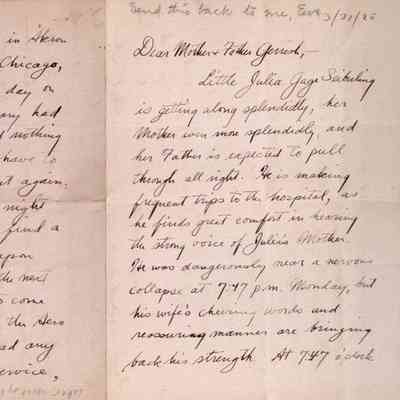 in Akron
Chicago,
day on
ary had
d nothing
have to
t again.
night
find a
upon
the next
s come
the Aero
ad any
service,
Send this back to me, Eva 3/30/26
Dear Mother & Father Gerrish,—
Little Julia Gage Seiberling
is getting along splendidly, her
Mother even more splendidly, and
her Father is expected to pull
through all right. He is making
frequent trips to the hospital, as
he finds great comfort in hearing
the strong voice of Julia's Mother.
He was dangerously near a nervous
collapse at 7:47 p.m. Monday, but
his wife's cheering words and
reassuring manner are bringing
back his strength. At 7:47 o'clock